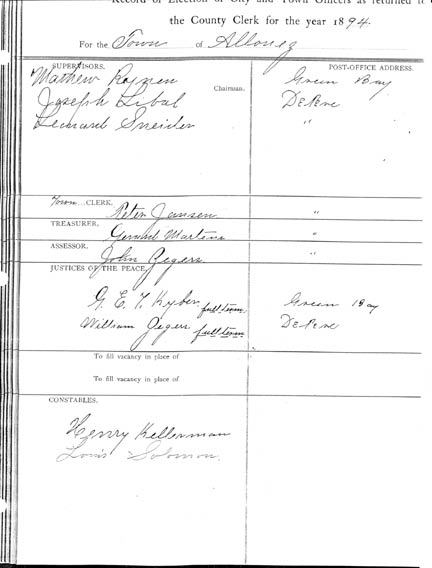 Record of Election of City and Town Officers as returned to
the County Clerk for the year 1894.
For the Town of Allouez
SUPERVISORS. POST-OFFICE ADDRESS.
Mathew Chairman. Green Bay
Joseph Libal DePere
Leonard Sneider "
Town CLERK.
Peter Jansen "
TREASURER.
Gerard Martens "
ASSESSOR.
John "
JUSTICES OF THE PEACE.
G. E. T. Kyber full term Green Bay
William full term DePere
To fill vacancy in place of
To fill vacancy in place of
CONSTABLES.
Henry Kellerman
Louis Solomon.